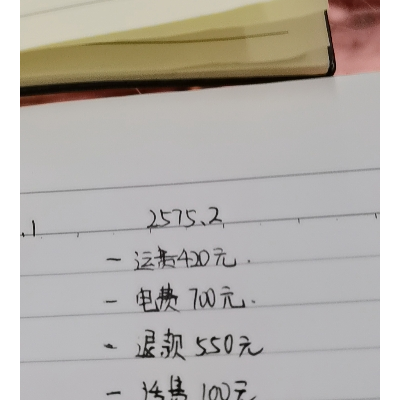 .1 2575.2
- 运费420元.
- 电费 700元.
- 退款 550元
- 话费 100元